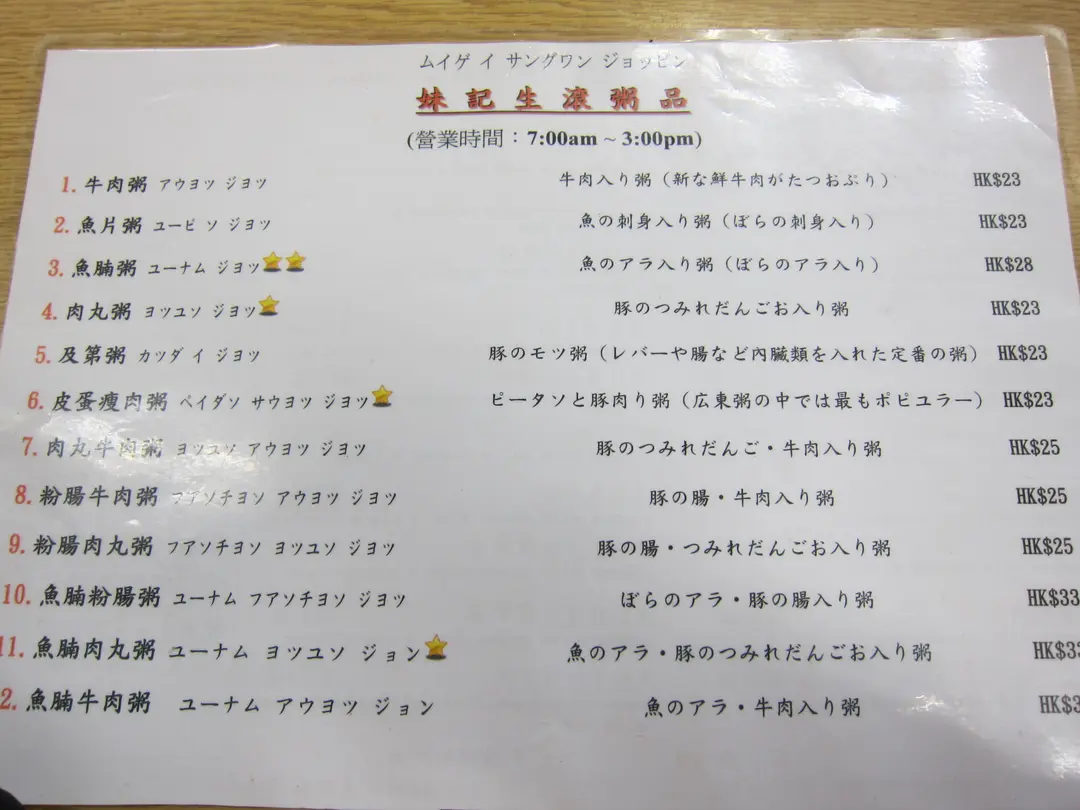 ムイゲ イ サングワン ジョッピン
妹記生滾粥品
(營業時間：7:00am ~ 3:00pm)
1. 牛肉粥 アウヨツ ジヨツ 牛肉入り粥（新な鮮牛肉がたつおぷり） HK$23
2. 魚片粥 ユーピ ソ ジヨツ 魚の刺身入り粥（ぼらの刺身入り） HK$23
3. 魚腩粥 ユーナム ジヨツ 魚のアラ入り粥（ぼらのアラ入り） HK$28
4. 肉丸粥 ヨツユソ ジヨツ 豚のつみれだんごお入り粥 HK$23
5. 及第粥 カツダ イ ジヨツ 豚のモツ粥（レバーや腸など內臓類を入れた定番の粥） HK$23
6. 皮蛋瘦肉粥 ペイダソ サウヨツ ジヨツ ピータソと豚肉り粥（広東粥の中では最もポピユラー） HK$23
7. 肉丸牛肉粥 ヨツユソ アウヨツ ジヨツ 豚のつみれだんご・牛肉入り粥 HK$25
8. 粉腸牛肉粥 フアソチヨソ アウヨツ ジヨツ 豚の腸・牛肉入り粥 HK$25
9. 粉腸肉丸粥 フアソチヨソ ヨツユソ ジヨツ 豚の腸・つみれだんごお入り粥 HK$25
10. 魚腩粉腸粥 ユーナム フアソチヨソ ジヨツ ぼらのアラ・豚の腸入り粥 HK$33
11. 魚腩肉丸粥 ユーナム ヨツユソ ジョン 魚のアラ・豚のつみれだんごお入り粥 HK$33
2. 魚腩牛肉粥 ユーナム アウヨツ ジョン 魚のアラ・牛肉入り粥 HK$3